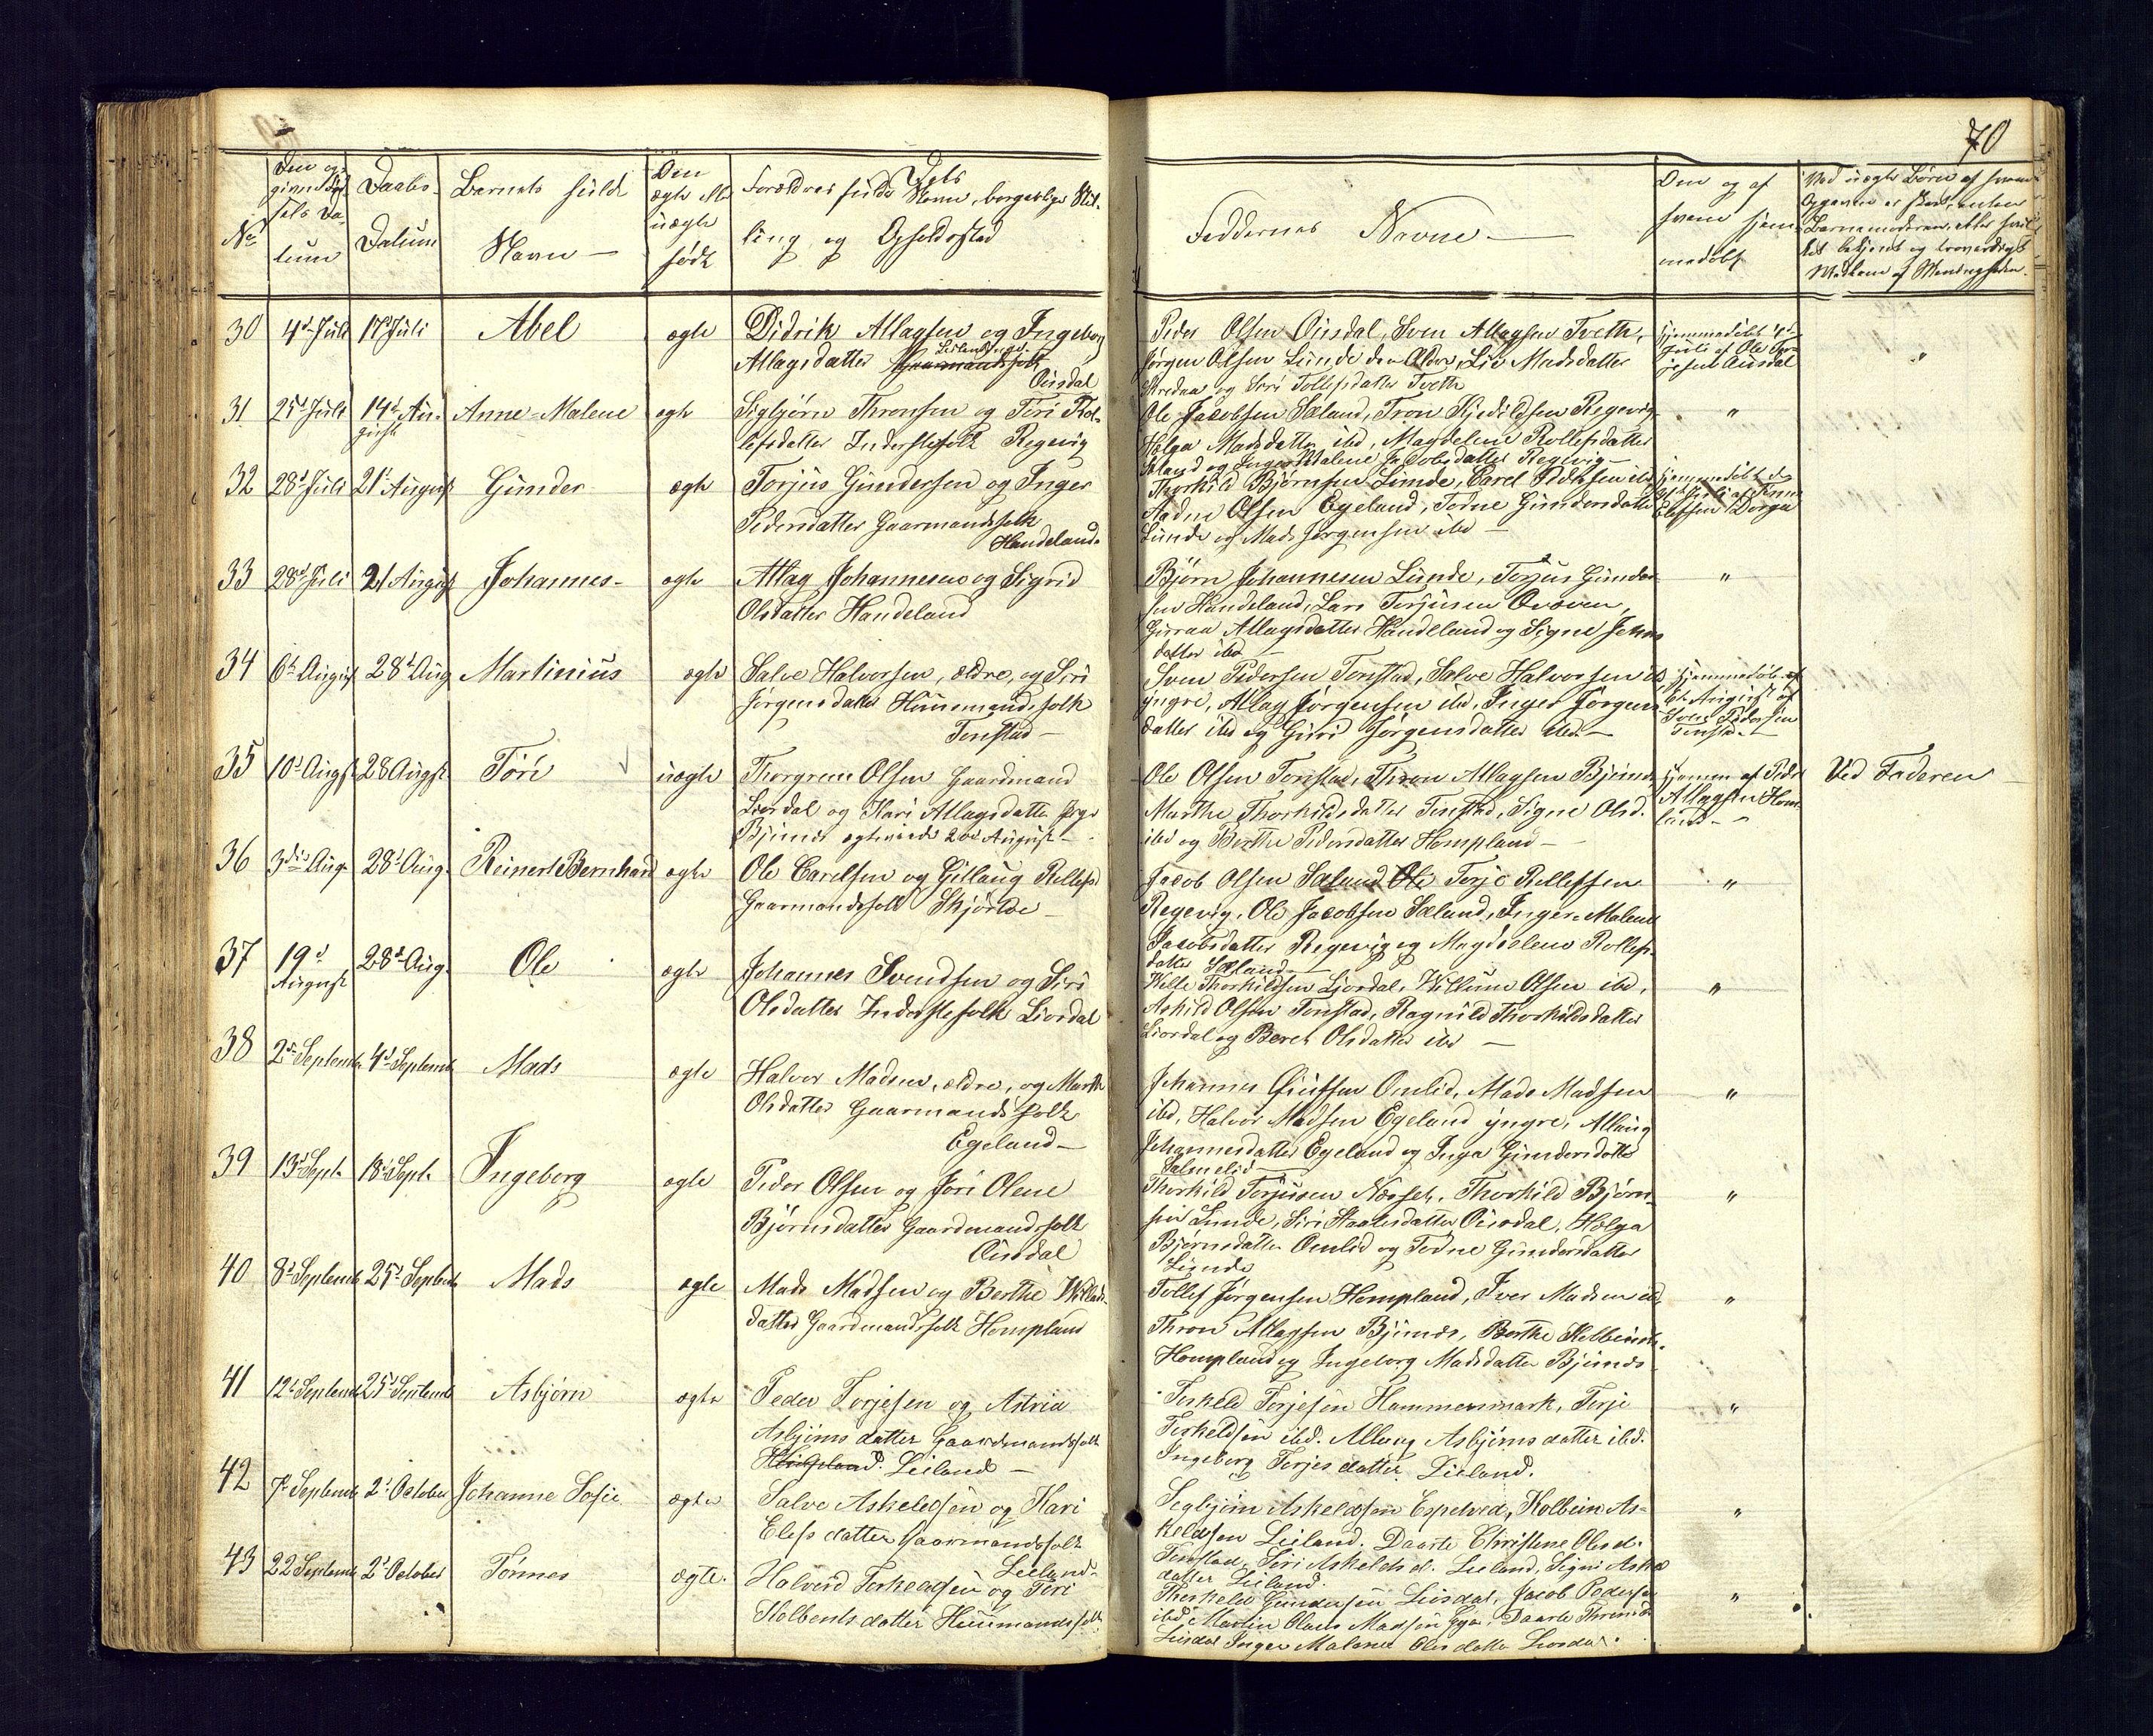 70
No
Den op-
given Fød-
sels Da-
tum
Daabs-
Datum
Barnets fulde
Navn —
Om
ægte eller
uægte
født
Dets
Forældres fulde Navn, borgerlige Stil-
ling, og Opholdssted
Faddernes Navne —
Om og af
hvem hjem-
medøbt
Ved uægte Børn af hvem
Opgaven er skeet, enten
Barnemoderen, eller hvil-
ket bekjendt og troværdigt
Medlem af Menigheden
30 4d Juli 17d Juli Abel ægte
Didrik Atlagsen og Ingeborg
Atlagsdatter Gaarmandsfolk
Ousdal
Peder Olsen Ousdal, Sven Atlagsen Tveth,
Jørgen Olsen Lunde den Ældre, Liv Madsdatter
og Siri Tollefsdatter Tveth
Hjemmedøbt
Juli af Ole
Ousdal
"
31 25d Juli 14d Au-
gust Anne-Malene ægte
Sigbjørn Thronsen og Siri Rol-
lefsdatter Inderstefolk Regevig
Ole Jacobsen Sæland, Tron Kjedilsen Regevig
Helga Madsdatter ibd, Magdelene Rollefsdatter
Sæland og Inger Malene Jacobsdatter Regevig —
"
32 28d Juli 21d August Gunder ægte
Torjus Gundersen og Inger
Pedersdatter Gaarmandsfolk
Handeland
Thorkild Bjørnsen Lunde, Carel Pedersen ibd
Aadne Olsen Egeland, Tarne Gundersdatter
Lunde og Mads Jørgensen ibd —
Hjemmedøbt
Elefsen Dorga
33 28d Juli 21 August Johannes ægte
Atlag Johannesen og Sigrid
Olsdatter Handeland
Bjørn Johannesen Lunde, Torjus Gunder-
sen Handeland, Lars Torjusen
Guroa Atlagsdatter Handeland og Signe Johns
datter ibd —
"
34 6d August 28d Aug Martinius ægte
Salve Halvorsen, ældre, og Siri
Jørgensdatter Huusmandsfolk
Tonstad —
Sven Pedersen Tonstad, Salve Halvorsen ibd
yngre, Atlag Jørgensen ibd, Inger Jørgens-
datter ibd og Guri Jørgensdatter ibd —
Hjemmedøbt
6te August af
Sven Pedersen
Tonstad —
35 10d Augst 28 Augst Tøri uægte
Thorgrem Olsen Gaardmand
Liordal og Kari Atlagsdatter Pige
Bjunes ægteviede 20d August —
Ole Olsen Tonstad, Thron Atlagsen Bjunes
Marthe Thorkildsdatter Tonstad, Signe Olsd.
ibd og Berthe Pedersdatter Hompland —
Hjemm af Peder
Atlagsen Hom-
land —
Ved Faderen
36 3die Aug. 28d Aug. Reinert Bernhard ægte
Ole Carelsen og Gullaug Rollefsd
Gaarmandsfolk Skjørlde —
Jacob Olsen Sæland Terje Rollefsen
Regevig, Ole Jacobsen Sæland, Inger Malene
Jacobsdatter Regevig og Magdelene Rollefs-
datter Sæland —
"
37 19d
August 28d Aug. Ole ægte
Johannes Svendsen og Siri
Olsdatter Inderstefolk Liordal
Thorkildsen Liordal, Willum Olsen ibd,
Askild Olsen Tonstad, Ragnild Thorkildsdatter
Liordal og Beret Olsdatter ibd —
"
38 2d Septemb 4d Septemb Mads ægte
Halvor Madsen, ældre, og Marthe
Olsdatter Gaarmandsfolk
Egeland —
Johannes Omlid, Mads Madsen
ibd, Halvor Madsen Egeland yngre, Atlaug
Johannesdatter Egeland og Inga Gundersdatter
Salmelid
"
39 13d Sept. 18d Sept. Ingeborg ægte
Peder Olsen og Jøri Olene
Bjørnsdatter Gaardmandsfolk
Ousdal
Thorkild Torjusen Næsset, Thorkild Bjørn-
sen Lunde, Siri Ousdal, Helga
Bjørnsdatter Omlid og Tarne Gundersdatter
Lunde
"
40 8d Septemb 25d Septemb Mads ægte
Mads Madsen og Berthe
datter Gaardmandsfolk Hompland
Tollef Jørgensen Hompland, Iver Madsen ibd,
Thron Atlagsen Bjunes, Berthe
Hompland og Ingeborg Madsdatter Bjunes
"
41 12d Septemb 25d Septemb Asbjørn ægte
Peder Terjesen og Astrid
Asbjørnsdatter Gaardmandsfolk
Leiland —
Terkeld Terjesen Hammersmark, Terje
Terkeldsen ibd. Atlaug Asbjørnsdatter ibd.
Ingeborg Terjesdatter Leiland.
"
42 7d Septemb 2d October Johanne Sofie ægte
Salve Askeldsen og Kari
Elefsdatter Gaarmandsfolk
Leiland
Segbjørn Askeldsen Espetved, Kolbein As-
keldsen Leiland. Daarte Christene Olesd.
Tonstad, Siri Askeldsd. Leiland, Signe Askelds
datter Leiland.
"
43 22 Septemb 2d October Tønnes ægte.
Halvord Terkeldsen og Siri
Kolbentsdatter Huusmandsfolk
Therkeld Gundersen Liosdal, Jacob Pedersen
ibd, Martin Olaus Madsen Daarte
Liosdal Inger Malene Olesdatter Liosdal.
"